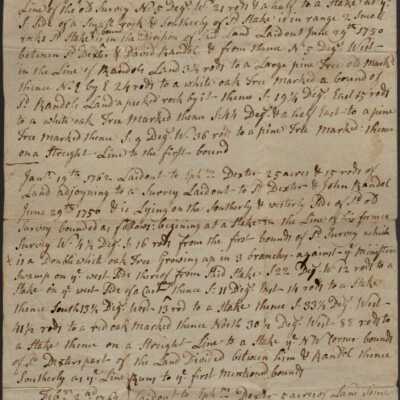 Line of the old Survey No 5 Degs W 21 rods & a half to a Stake at ye
Side of a Small rock & Southerly of sd Stake is in range 2 Small
rocks sd Stake is in the Division of Land Laidout June 29th 1750
between sd Dexter & David Randol & from thence No 5 Degs West
in the Line of Randols Land 3¾ rods to a Large pine tree old mark
thence No by E 24 rods to a white oak tree Marked a bound of
sd Randols Land a picked rock by it thence So 19¼ Degs East 15 rods
to a white oak Tree Marked thence So 44 Degs & a half East to a pine
Tree marked thence So 9 Degs W 36 rods to a pine Tree Marked thence
on a Streight Line to the first bound
Janry 19th 1762 Laidout to Dexter 25 acres & 15 rods of
Land adjoyning to a Survey Laidout to sd Dexter & John Randol
June 29th 1750 & is Lying on the Southerly & westerly Side of sd old
Survey bounded as follows: begening at a Stake in the Line of his former
Survey W 4¼ Degs So 16 rods from the first bounds of sd Survey which
is a Double white oak Tree Growing up in 3 branches against ye
Swamp on ye west Side thereof from Said Stake So 22 Degs W 12 rods to a
Stake on ye west Side of a thence So 11 Degs West 14 rods to a Stake
thence South 13¾ Degs West 13 rod to a Stake thence So 33¾ Degs West
41½ rods to a rid oak marked thence North 30½ Degs West 88 rods to
a Stake thence on a Streight Line to a Stake ye NW Corner bounds
of sd Dexters part of the Land Divided between him & Randol thence
Southerly as ye Line Runs to ye first mentioned bounds
Laidout to Dexter acres of Land